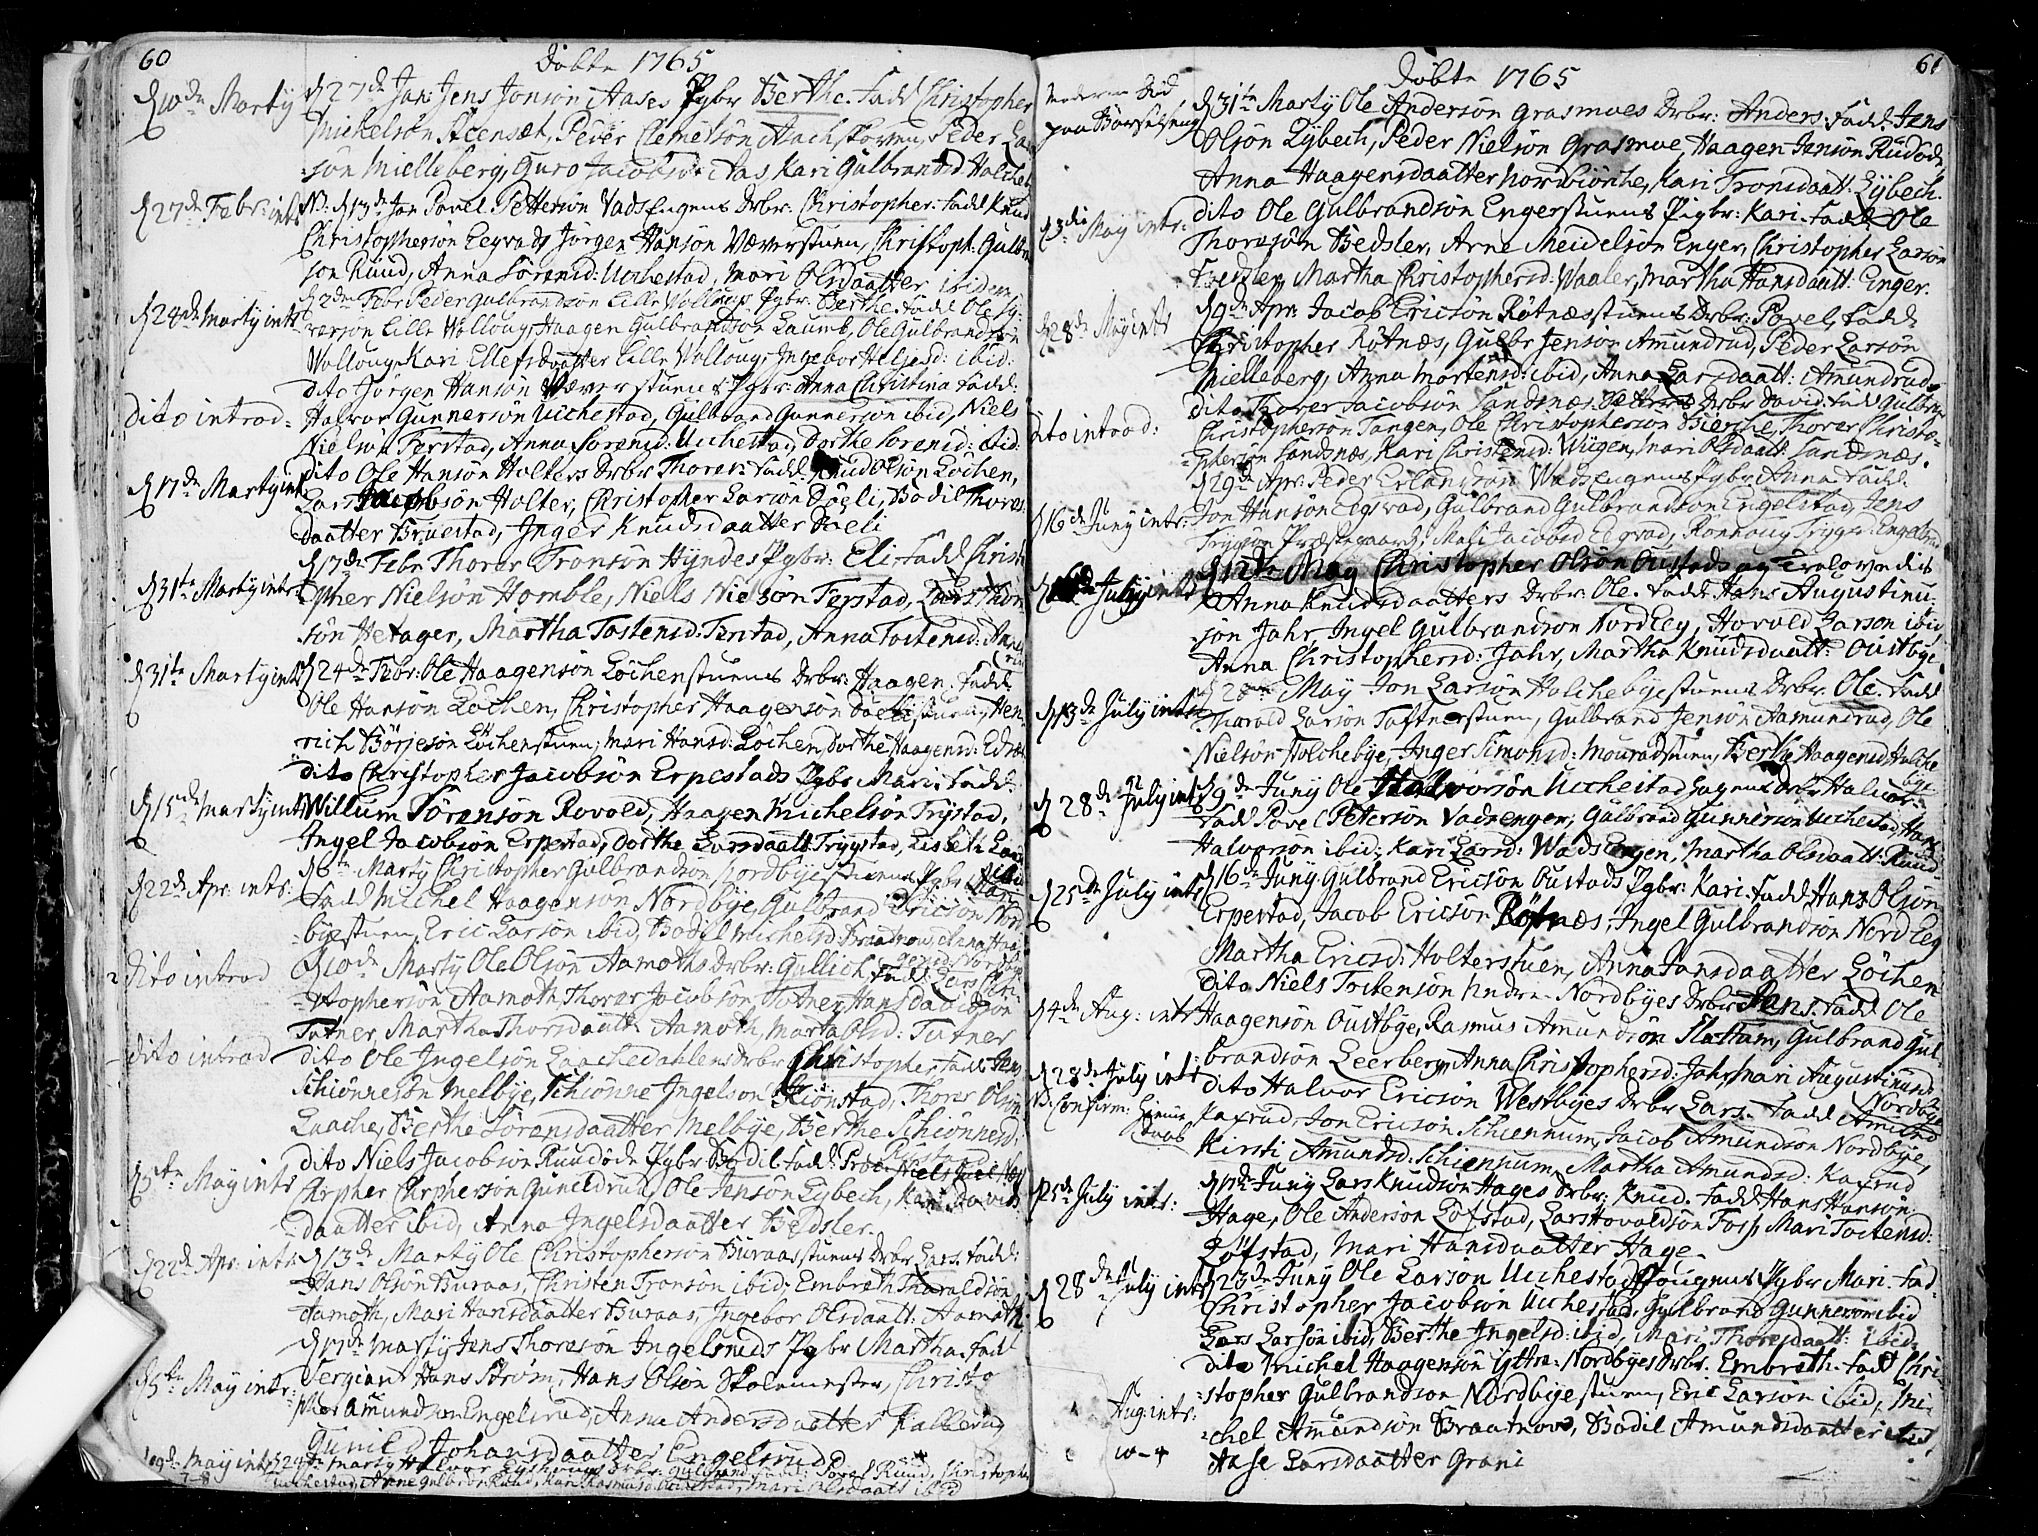 60
Döbte 1765
d 10de Marty
d 27de Jan: Jens Jonsön Aases Pgbr Berthe. Fadd Christopher
Michelsön Steensæt, Peder Clemetsön, Peder Lar
sön Mielleberg, Guro Jacobsd: Aas Kari Gulbrantsd Holcheb
d 27de Febr: intr
NB. d 13de Jan Povel Pettersön VadsEngens Drbr: Christopher. Fadd Knud
Christophersön Eegvad, Jörgen Hansön Væverstuen, Christoph. Gulbr
sön Ruud, Anna Sörensd: Uchestad, Mari Olsdaatter ibidem
d 24de Marty intr
d 2den Febr Peder Gulbrandsön Lille Wolloug Pgbr: Berthe. Fadd Ole
versön Lille Wolloug, Haagen Gulbrandsön Laumb, Ole Gulbrandsön
Wolloug, Kari Ellefsdaatter Lille Wolloug, Ingebor Helgesd: ibid:
dito introd:
dito Jörgen Hansön Væverstuens Pgbr: Anna Christina Fadd:
Halvor Gunnersön Uchestad, Gulbrand Gunnersön ibid, Niels
Nielsön Ferstad, Anna Sörensd: Uchestad, Dorthe Sörensd: ibid:
d 17de Marty intr
dito Ole Hansön Holters Drbr Thorer: Fadd Knud Olsön Löchen,
Lars Jacobsön Holter, Christopher Larsön Döeli, Bodil Thores
daatter Bruestad, Inger Knudsdaatter Döeli
d 31te Marty intr:
d 17de Febr Thorer Tronsön Hyndes Pgbr: Eli Fadd Christo
pher Nielsön Homble, Niels Nielsön Ferstad, Lars Thor
sön Hexager, Martha Tostensd: Ferstad, Anna Tostensd:
d 31te Marty intr
d 24de Febr: Ole Haagensön Löchenstuens Drbr: Haagen. Fadd
Ole Hansön Löchen, Christopher Haagensön Döelistuen, Hen
rich Börjesön Löchenstuen, Mari Hansd: Löchen, Dorthe Haagensd:
d 15de Marty intr
dito Christopher Jacobsön Erpestads Pgbr Mari. Fadd:
Willum Sörensön Rovold, Haagen Michelsön Trystad,
Ingel Jacobsön Erpestad, Dorthe Larsdaatt: Trygstad, Lisbeth Lar
d 22de Apr: intr:
d 6te Marty Christopher Gulbrandsön Nordbyestuens Pgbr
Fadd Michel Haagensön Nordbye, Gulbrand Ericsön Nord
byestuen, Eric Larsön ibid, Bodil Michelsd Braatnou, Anna Haa
gensd: Nordbye
dito introd
d 10de Marty Ole Olsön Aamoths Drbr: Gullich, Fadd Lars Chri
stophersön Aamoth, Thorer Jacobsön Tutner, Hans Davidsön
Tutner, Martha Thorsdaatt: Aamoth, Marta Olsd: Tutner
dito introd
dito Ole Ingelsön Laachedahlens Drbr Christopher Fadd
Schiönnesön Melbye, Schiönne Ingelsön Kiönstad, Thorer Olsön
Laache, Berthe Sörensdaatter Melbye, Berthe Schiönnesd:
d 5te May intr
dito Niels Jacobsön Ruudöde Pgbr Bodil. Fadd:
Chrpher Chrphersön Guneldrud, Ole Jensön Lybech, Kari Davids
daatter ibid, Anna Ingelsdaatter Bedsler.
d 22de Apr: intr
d 13de Marty Ole Christophersön Buraasstuens Drbr Lars. Fadd:
Hans Olsön Buraas, Christen Tronsön ibid, Embreth Tharaldsön
Aamoth, Mari Hansdaatter Buraas, Ingebor Olsdaatt: Aamoth
d 5te May intr:
d 17de Marty Jens Thoresön Ingelsruds Pgbr Martha. Fadd
Sergiant Hans Ström, Hans Olsön Skolemester, Christo
pher Amundsön Engelsrud, Anna Andersdaatter Kallerud
Gunild Johansdaatter Engelsrud
19de May intr
d 29de Marty Drbr: Gulbrand Fadd: Povel Ruud, Christopher
Uchestad, Anne Gulbr: Ruud, Kari Rasmusd Uchestad, Mari Olsdaatt ibid
61
Döbte 1765
Moderen död
paa Barselseng
d 31te Marty Ole Andersön Grasmoes Drbr: Anders. Fadd: Jens
Olsön Lybech, Peder Nielsön Grasmoe, Haagen Jensön Ruudöde
Anna Haagensdaatter Nordbiörche, Kari Tronsdaatt: Lybech.
d 3die May intr:
dito Ole Gulbrandsön Engerstuens Pigbr: Kari. Fadd: Ole
Thoresön Bedsler, Arne Meidelsön Enger, Christopher Larsön
Bedsler, Martha Christophersd: Waaler, Martha Hansdaatt: Enger.
d 28de May intr
d 9de Apr: Jacob Ericsön Rötnæsstuens Drbr: Povel, Fadd:
Christopher Rötnæs, Gulbr Jensön Amundrud, Peder Larsön
Mielleberg, Anna Mortensd: ibid, Anna Larsdaatt: Amundrud
dito introd:
dito Thorer Jacobsön Sandsnæs Drbr David: Fadd Gulbr
Christophersön Tangen, Ole Christophersön Bierche, Thorer Christo-
phersön Sandsnæs, Kari Christensd: Wiigen, Mari Olsdaatt: Sandsnæs.
d 16de Juny intr:
d 29de Apr: Peder Erlandsön WadsEngens Pgbr Anna. Fadd:
Jon Hansön Eegvad, Gulbrand Gulbrandsön Engelstad, Jens
Trygsön Præstegaard, Mari Jacobsd Eegvad, Ronnoug Trygsd: Engelstad
July intr
d 12te May Christopher Olsön Oustads og Trolovedis
Anna Knudsdaatters Drbr: Ole. Fadd: Hans Augustinu
sön Jahr, Ingel Gulbrandsön NordEeg, Hovold Larsön ibid
Anna Christophersd: Jahr, Martha Knudsdaatt: Oustbye.
d 13de July intr
d 28de May Jon Larsön Holchebyestuens Drbr: Ole. Fadd
Harald Larsön Toftnerstuen, Gulbrand Jensön Aamundrud, Ole
Nielsön Holchebye, Inger Simonsd: Mourudstuen, Berthe Haagensd Holche
bye
d 28de July intr
d 9de Juny Ole Halvorsön Uchestad Drbr Halvor
Fadd Povel Petersön Vadsengen, Gulbrand Gunnersön Uchestad, Hans
Halvorsön ibid, Kari Larsd: WadsEngen, Martha Olsdaatt: Ruud
d 25de July intr
d 16de Juny Gulbrand Ericsön Oustads Pgbr: Kari. Fadd, Hans Olsön
Erpestad, Jacob Ericsön Rötnæs, Ingel Gulbrandsön NordEeg
Martha Ericsd: Holterstuen, Anna Jansdaatter Löchen
d 4de Aug: intr
dito Niels Tostensön Nedre Nordbyes Drbr Jens. Fadd Ole
Haagensön Oustbye, Rasmus Amundsön Slattum, Gulbrand Gul-
brandsön Leerberg, Anna Christophersd: Jahr, Mari Augustinusd
Nordbye
d 28de July intr
NB: Confirm: hiemme
daab
dito Halvor Ericsön Westbyes Drbr Lars. Fadd Amund
Kaxrud, Jon Ericsön Schiennum, Jacob Amundsön Nordbye,
Kirsti Amundsd: Schiennum, Martha Amundsd: Kaxrud
d 25de July intr:
Juny Lars Knudsön Hages Drbr: Knud. Fadd Hans Hansön
Hage, Ole Andersön Löfstad, Lars Hovoldsön Foss, Mari Tostensd:
Löfstad, Mari Hansdaatter Hage.
d 28de July intr
d 23de Juny Ole Larsön Uchestad Pgbr Mari. Fad
Christopher Jacobsön Uchestad, Gulbrand Gunnersön ibid
Lars Larsön ibid, Berthe Ingelsd: ibid, Mari Thoresdaatt: ibid.
Aug: intr:
10 - 4
dito Michel Haagensön Yttre-Nordbyes Drbr. Embreth. Fadd Chri-
stopher Gulbrandsön Nordbyestuen, Eric Larsön ibid, Mi-
chel Amundsön Braatnov, Bodil Amundsdaatter ibid
Aase Larsdaatter Grani